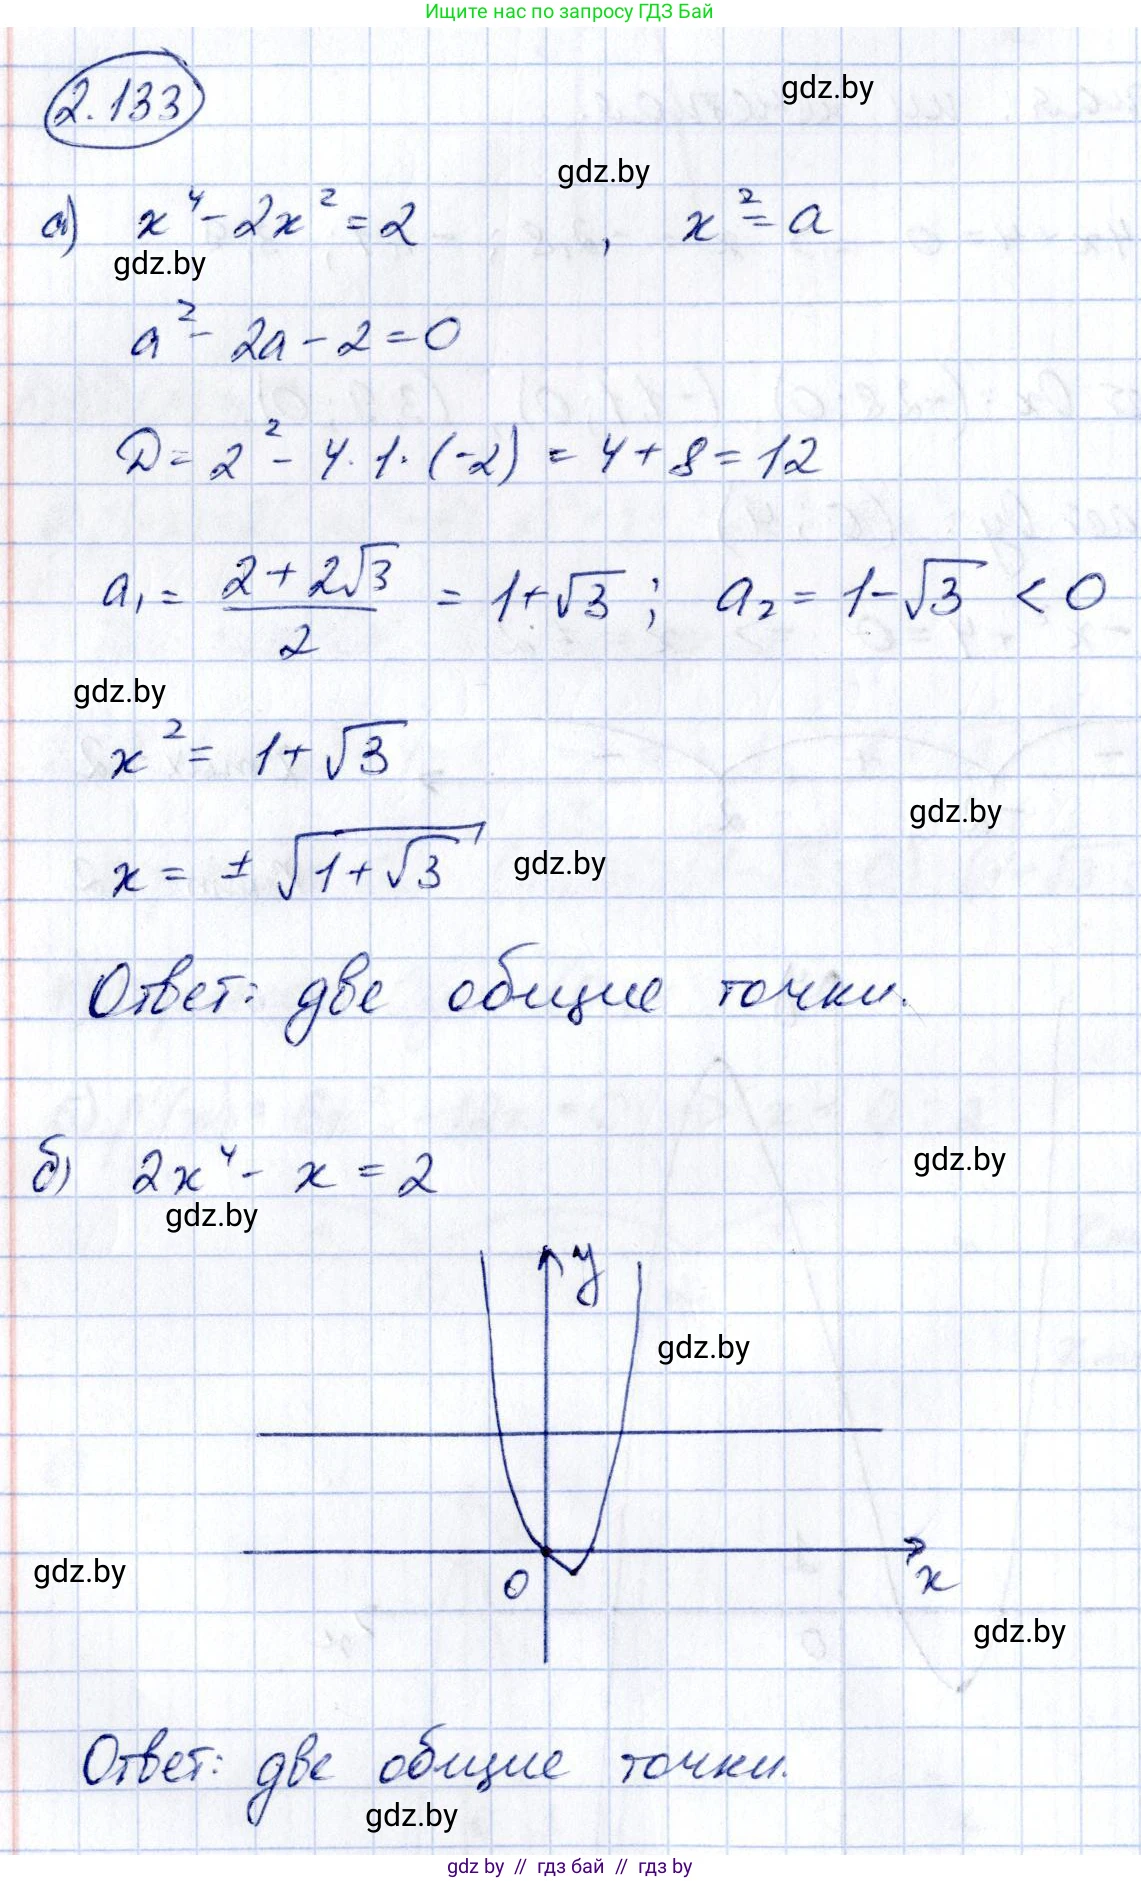 Ищите нас по запросу ГДЗ Бай
2.133
gdz.by
gdz.by
а) x⁴ - 2x² = 2 , x² = a
gdz.by
a² - 2a - 2 = 0
D = 2² - 4 · 1 · (-2) = 4 + 8 = 12
a₁ = (2 + 2√3)/2 = 1 + √3 ; a₂ = 1 - √3 < 0
gdz.by
x² = 1 + √3
gdz.by
x = ± √(1 + √3)
gdz.by
Ответ: две общие точки.
б) 2x⁴ - x = 2
gdz.by
gdz.by
y
gdz.by
0
x
gdz.by
gdz.by
Ответ: две общие точки.
gdz.by
gdz by // гдз бай // гдз by